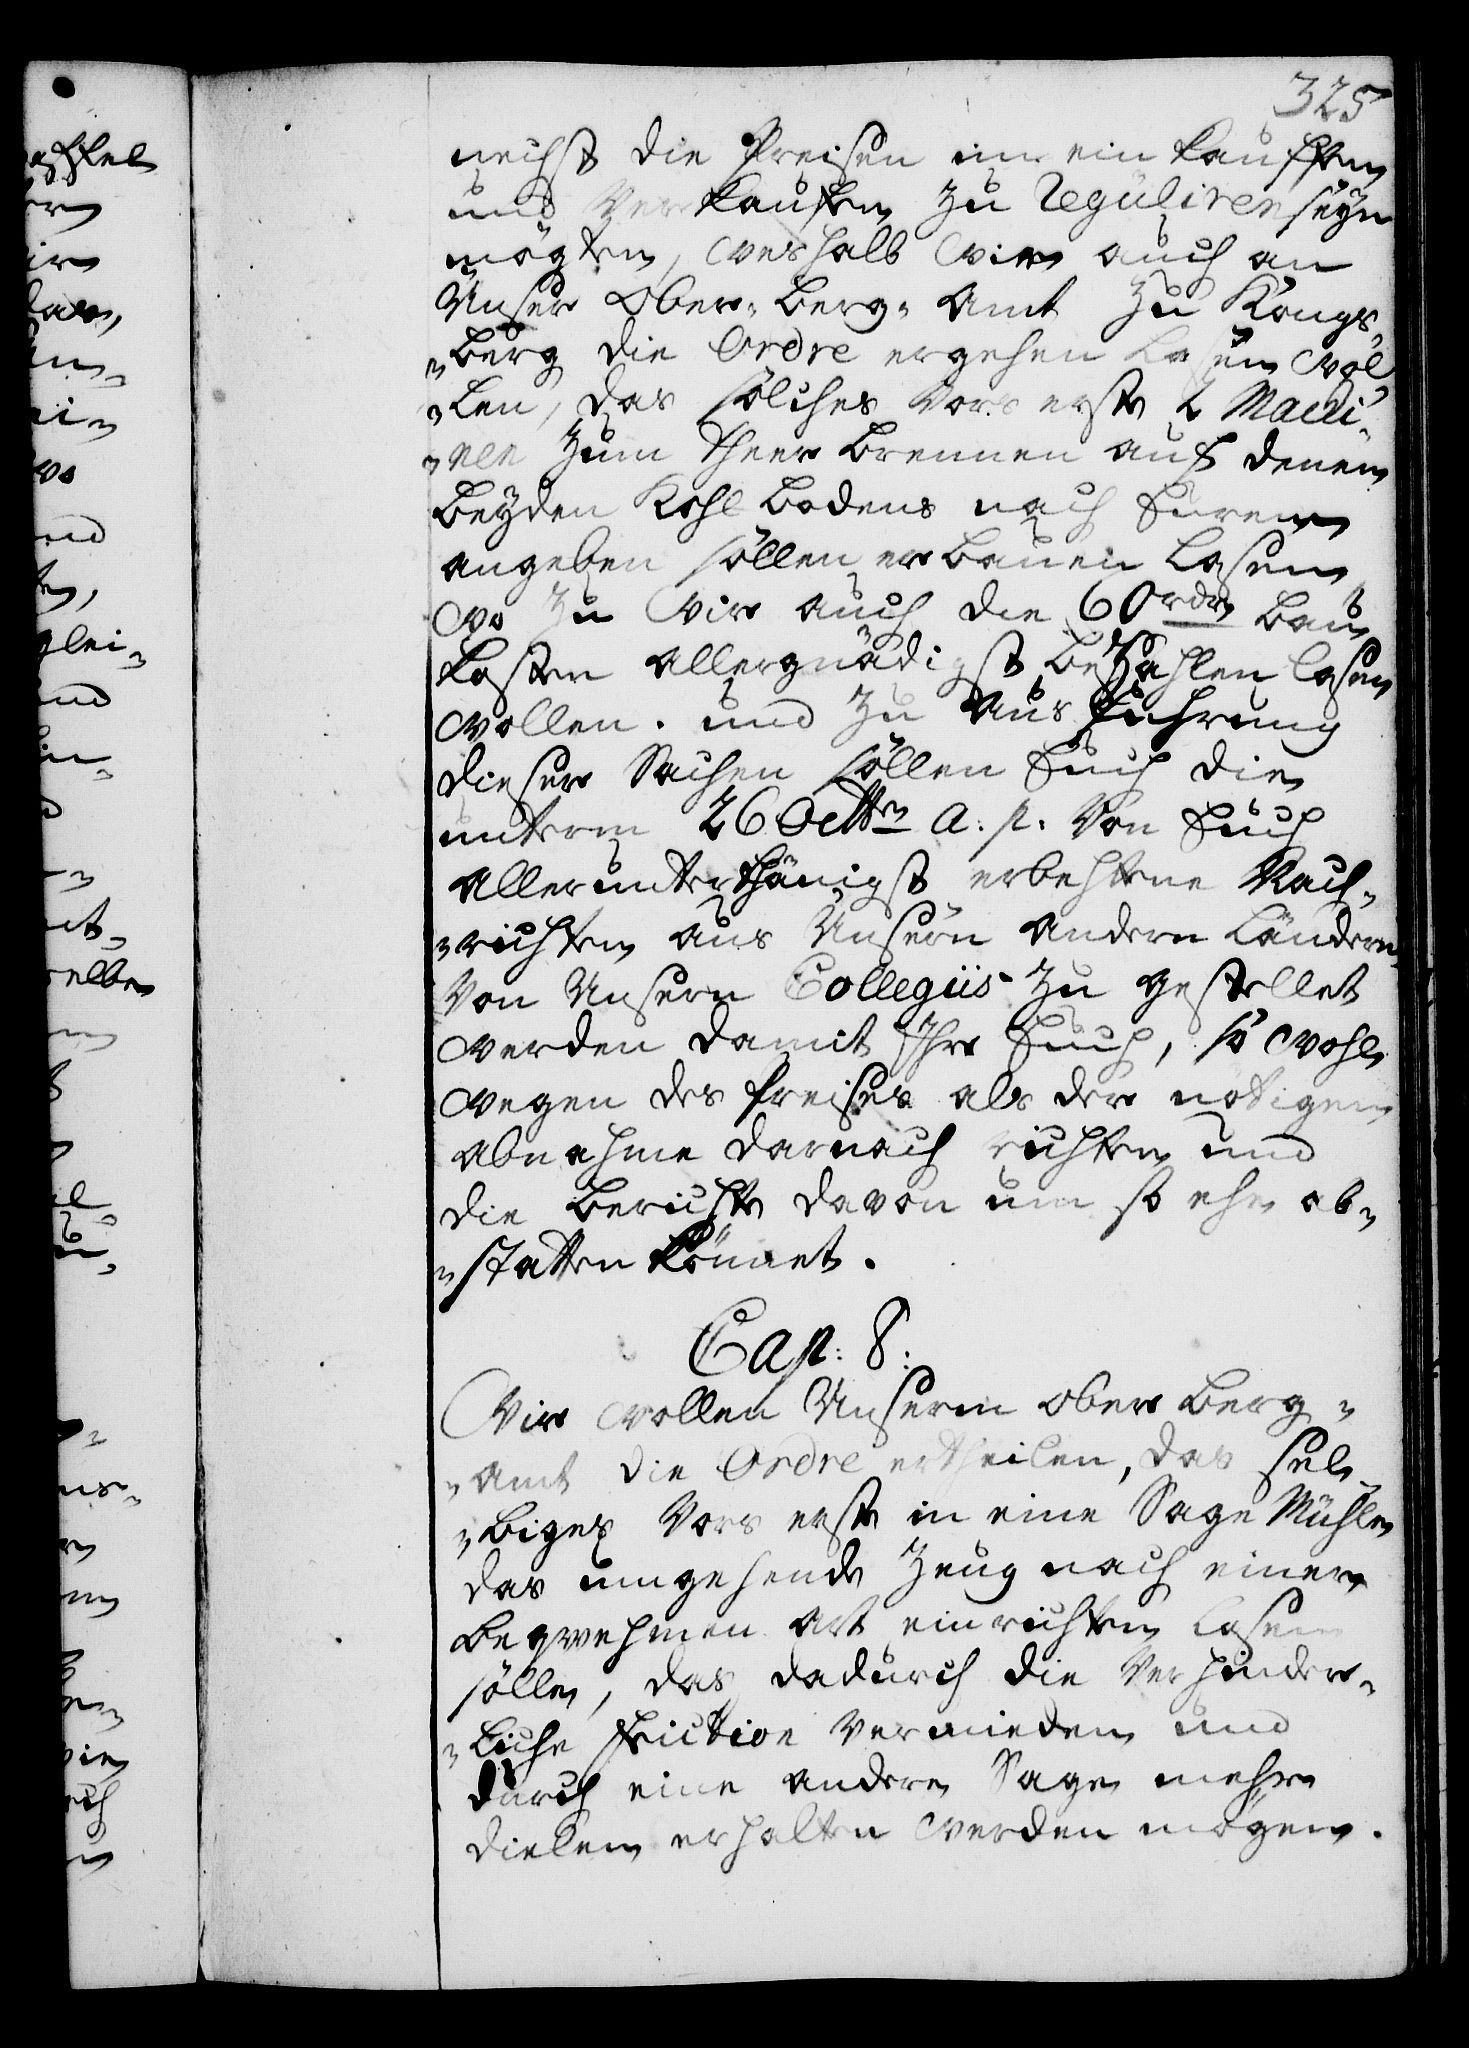 325
nechst die Preisen im ein kauffen
und Verkaufen zu Reguliren seyn
mögten, weshalb wir auch an
Unser Ober-Berg-Amt zu Kongs-
-berg die Ordre ergehen lasen wol-
-len, das solches Vors erste 2 Maui-
-nen zum Theer brennen auf denen
beyden Kohl bodens nach Eurem
angeben sollen erbauen lasen,
wo zu wir auch die 60 rdr bau
kosten allergnädigst bezahlen lasen
wollen. und zu Ausführung
dieser Sachen sollen Euch die
unterm 26 Octbr a. p. von Euch
allerunterthänigst erbehtene Nach-
-richten aus Unsern andern Ländern
von Unsern Collegiis zu gestellet
werden damit Ihr Euch, so wohl
wegen des Preises als der nötigen
abnahme darnach richten und
die berichte davon um so ehe ab-
-statten könnet.
Cap: 8:
Wir wollen Unserm ober Berg-
-amt die Ordre ertheilen, das sel-
-biges Vors erste in eine Sage Mühle
das umgehende Zeug nach einer
beqwehmen art einrichten lasen
solle, das dadurch die Verhinder-
-liche friction vermieden und
durch eine andere Sage mehre
dielen erhalten werden mögen.